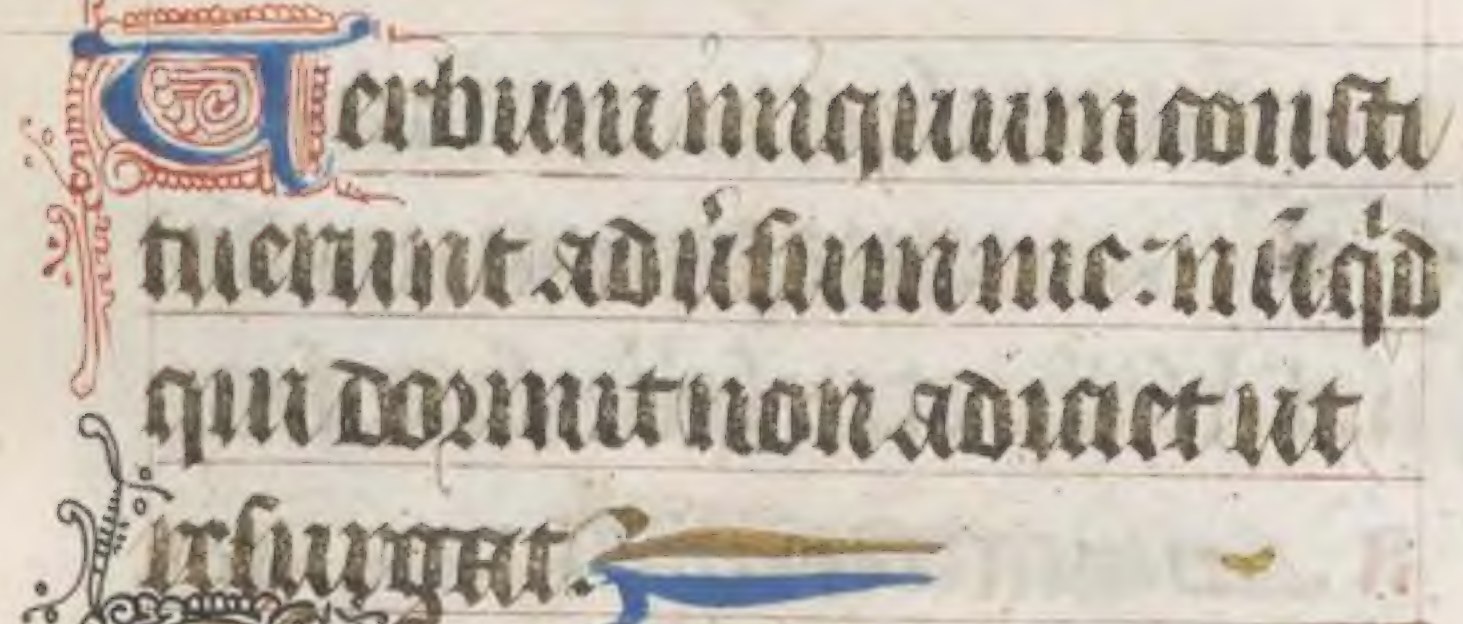 Verbum iniquum consti
tuerunt adűsum me: nūqͥd
qui dormit non adiciet ut
resurgat.